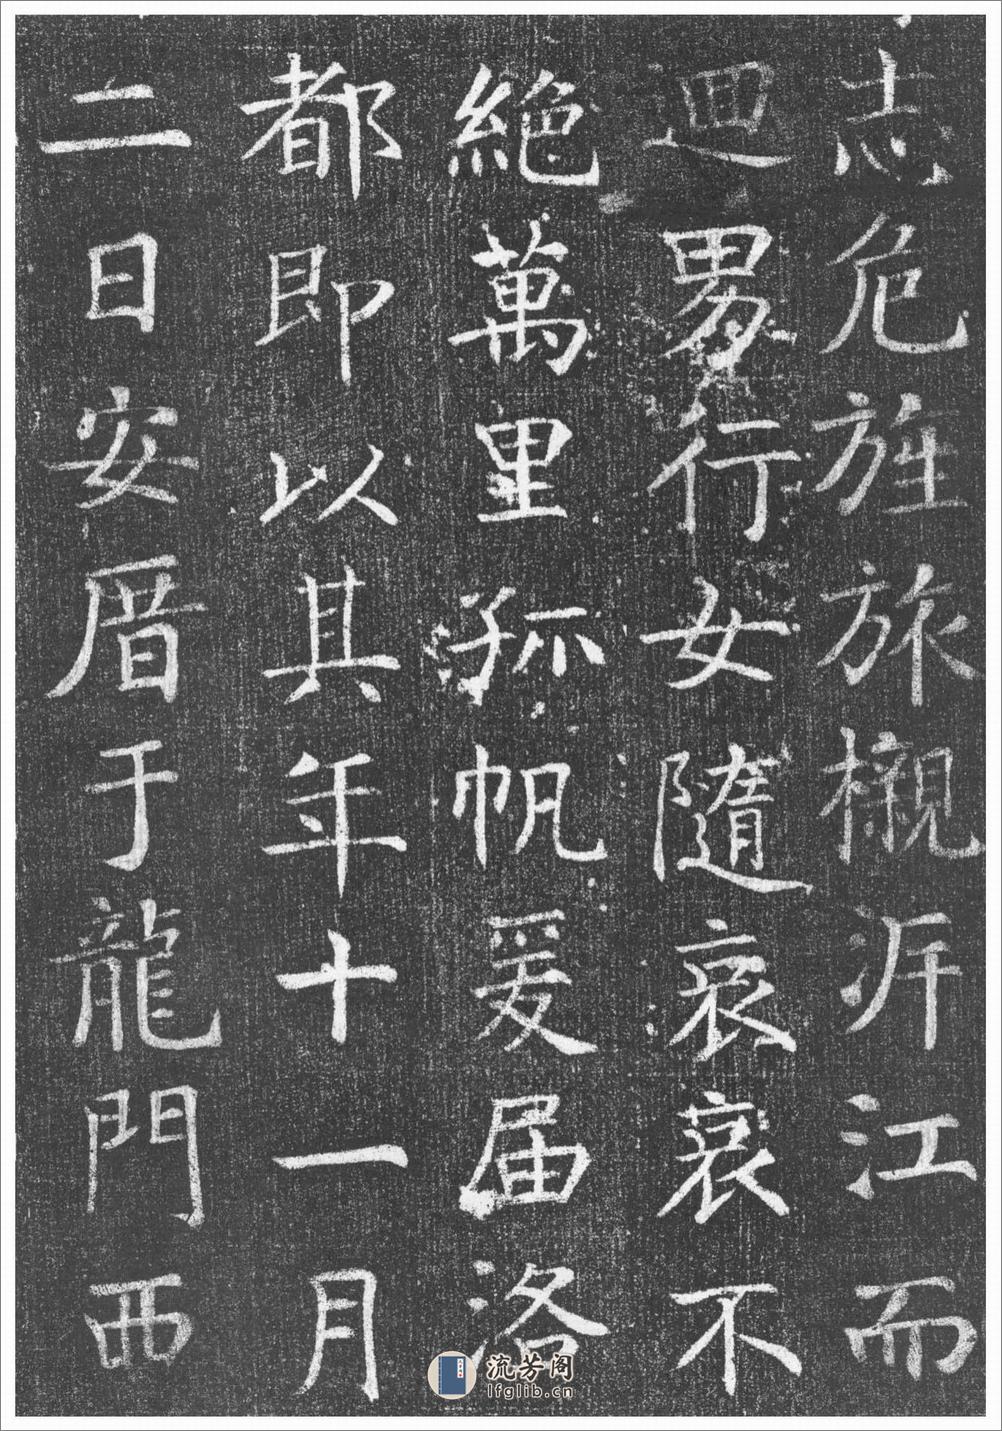 志危旌旅櫬泝江而
迴男行女隨哀哀不
絶萬里孤帆爰届洛
都即以其年十一月
二日安厝于龍門西
流芳阁
lfglib.cn